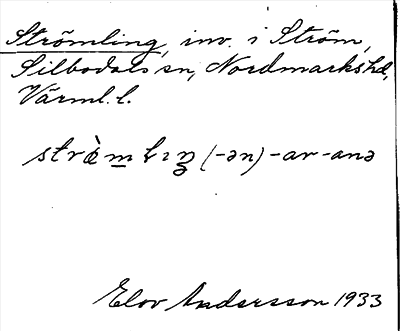 Strömling, inv. i Ström,
Silbodals sn, Nordmarks hd,
Värml. l.
strœ̀m̲lıŋ (-ən) -ar -anə
Elov Andersson 1933